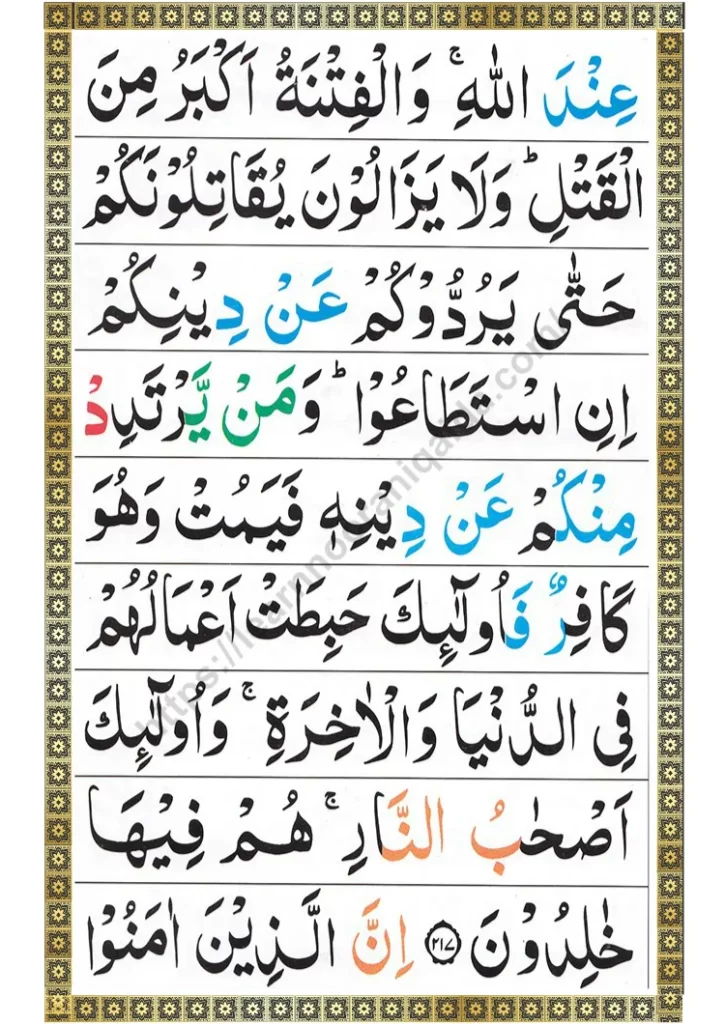 عِنْدَ اللّٰهِ ۚ وَالْفِتْنَةُ اَكْبَرُ مِنَ
الْقَتْلِ ؕ وَلَا يَزَالُوْنَ يُقَاتِلُوْنَكُمْ
حَتّٰى يَرُدُّوْكُمْ عَنْ دِيْنِكُمْ
اِنِ اسْتَطَاعُوْا ؕ وَمَنْ يَّرْتَدِدْ
مِنْكُمْ عَنْ دِيْنِهٖ فَيَمُتْ وَهُوَ
كَافِرٌ فَاُولٰٓئِكَ حَبِطَتْ اَعْمَالُهُمْ
فِى الدُّنْيَا وَالْاٰخِرَةِ ۚ وَاُولٰٓئِكَ
اَصْحٰبُ النَّارِ ۚ هُمْ فِيْهَا
خٰلِدُوْنَ ﴿۲۱۷﴾ اِنَّ الَّذِيْنَ اٰمَنُوْا